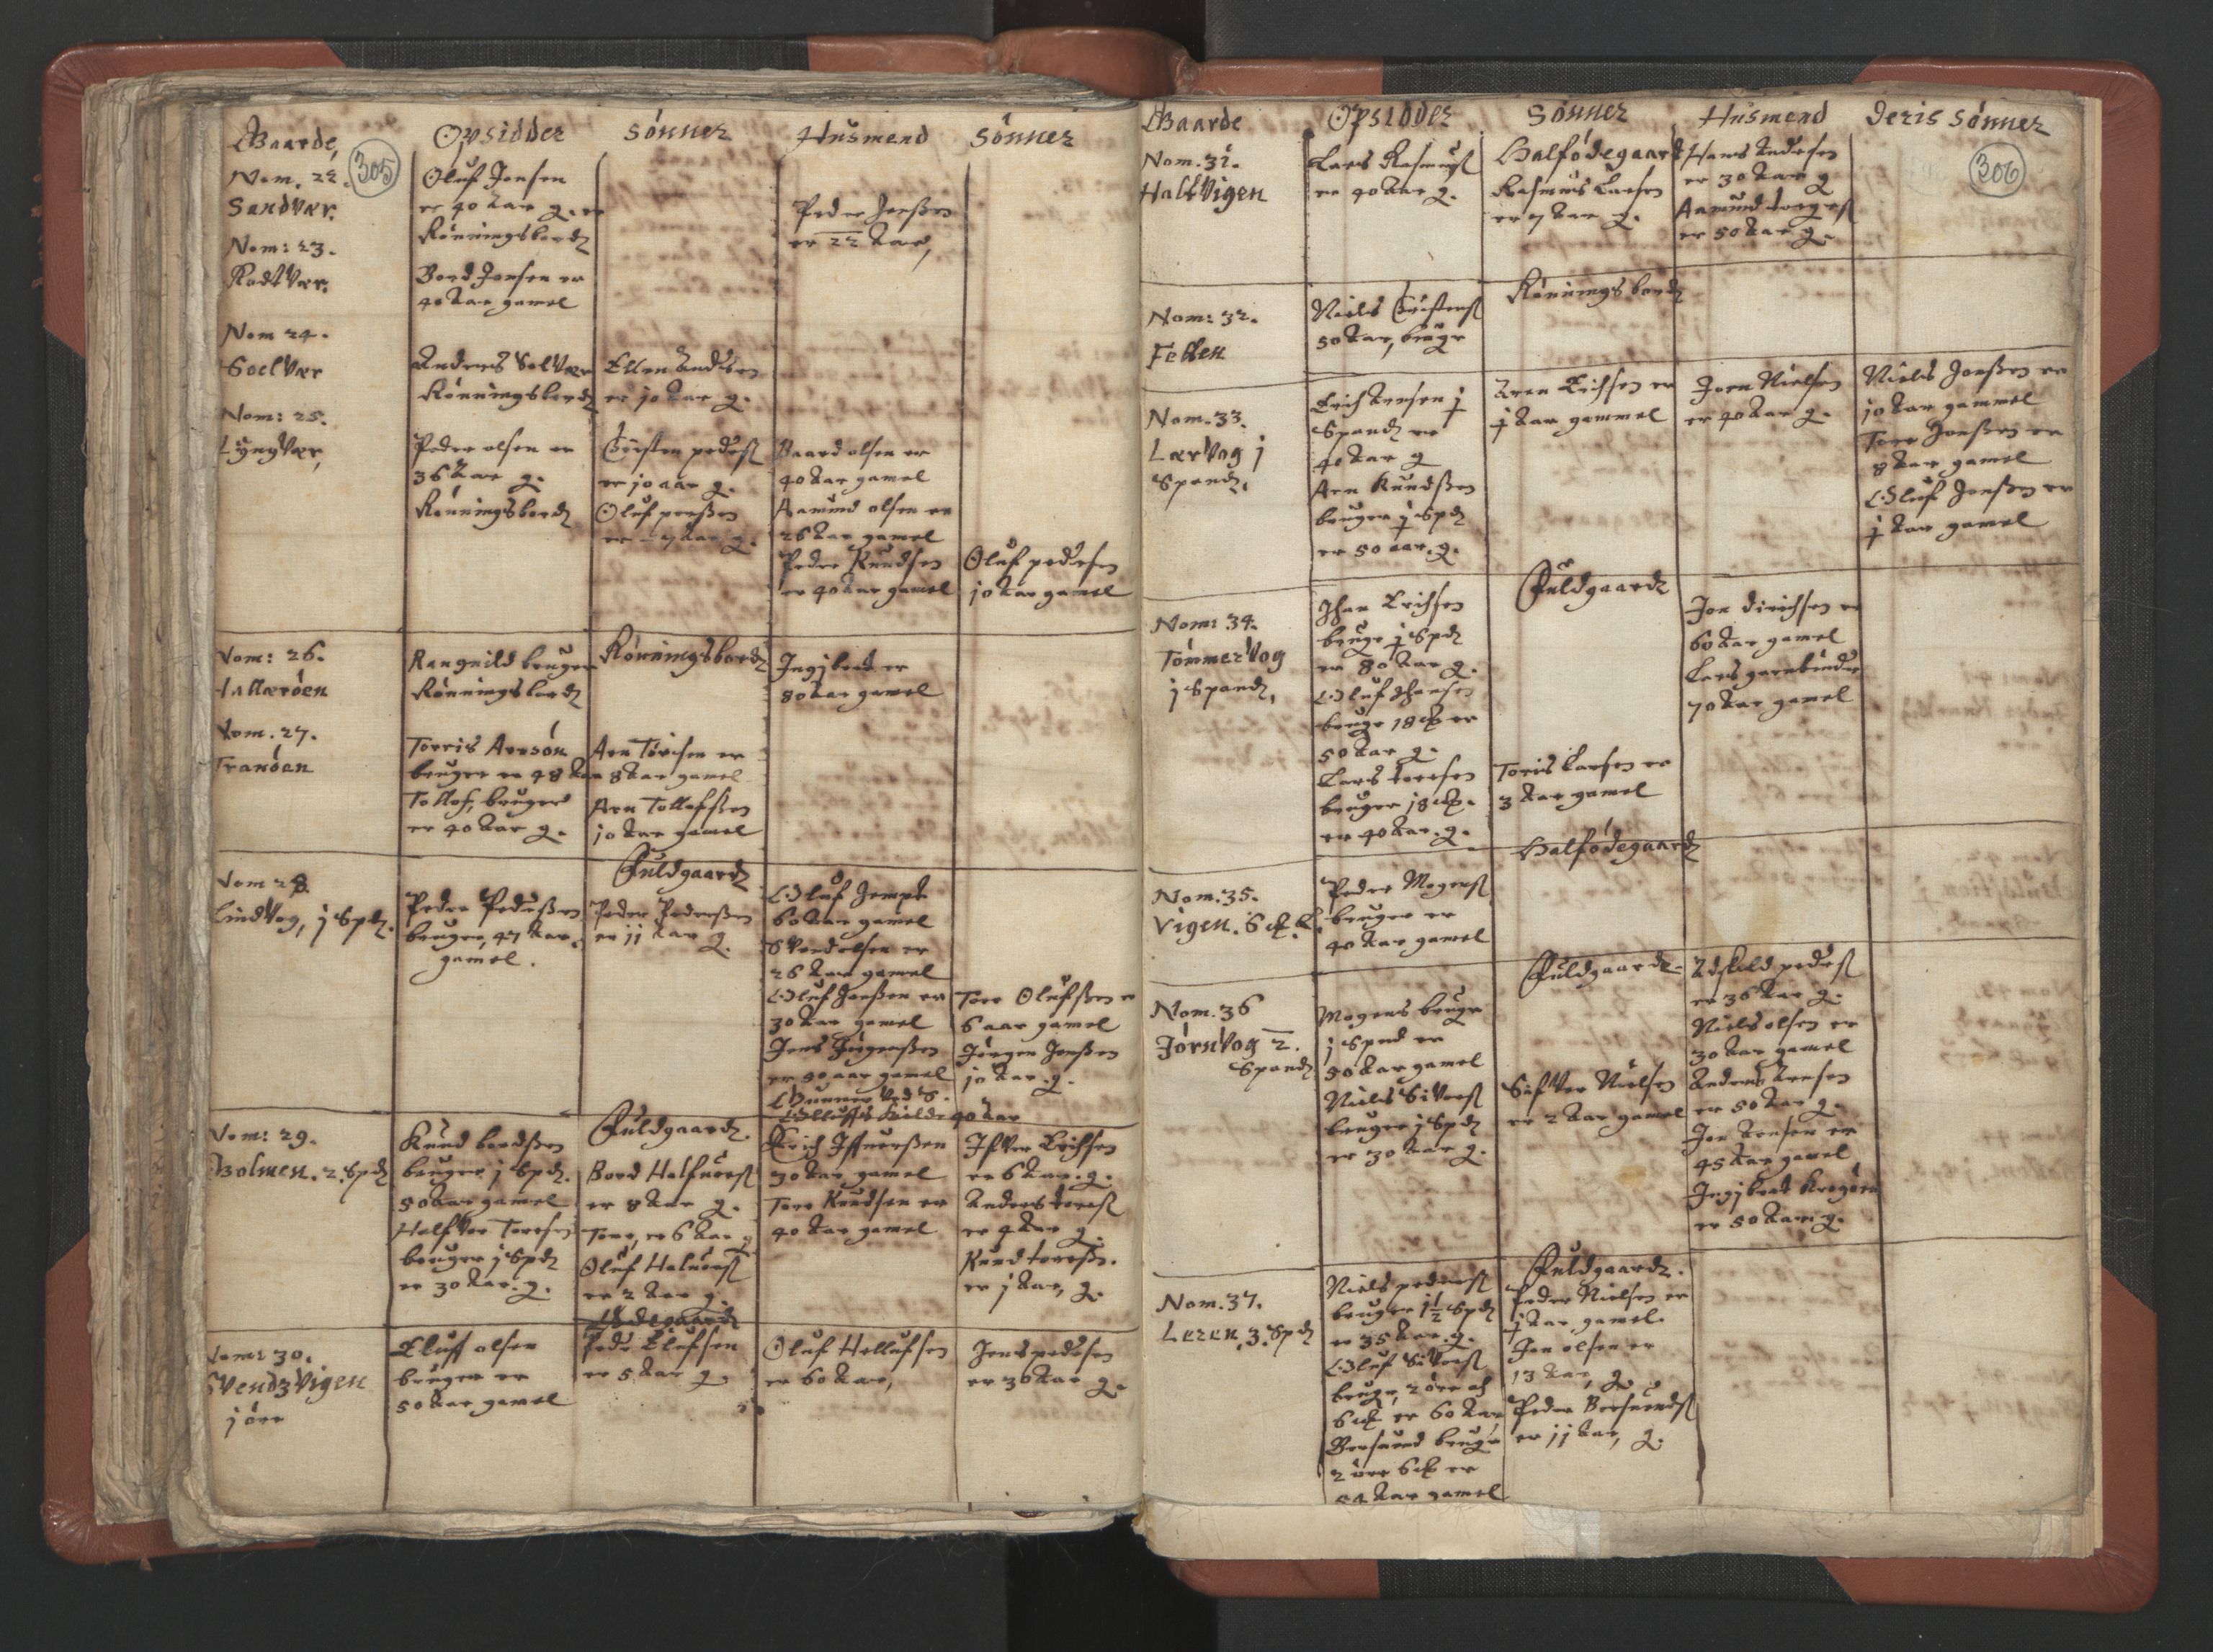 Gaarde,
Opsidder
Sønner
Husmend
Sønner
305
Nom. 22.
Sandvær.
Oluf Jonsen
er 40 aar g. er
Rønningsbordz
Peder Jonsßen
er 22 aar,
Nom: 23.
Rodtvær.
Bord Jonsen er
40 aar gamel
Nom 24.
Soelvær
Anders Solvær
Rønningsbordz
Ellen Andersen
er 10 aar g.
Nom: 25.
Lyngvær,
Peder olsen er
36 aar g.
Rønningsbordz
Christen peders
er 10 aar g.
Oluf peersßen
er 7 aar g.
Baard olsen er
40 aar gamel
Aamund olsen er
26 aar gamel
Peder Knudsen
er 40 aar gamel
Oluf pedersen
10 aar gamel
Nom: 26.
Hallarøen
Rangnild bruger
Rønningsbordz
Rønningsbordz
Ingjbret er
80 aar gamel
Nom. 27.
Tranøen
Torris Arnsøn
bruger er 48 aar
Tollof, bruger
er 40 aar g.
Arn Torrisen er
8 aar gamel
Arn Tollofsßen
10 aar gamel
Nom 28.
Lindvog, j Spdz.
Peder Pedersßen
bruger, 47 aar
gamel.
Fuldgaardz
Peder Pedersßen
er 11 aar g.
Oluf Jempt
60 aar gamel
Svend olsen er
26 aar gamel
Oluf Jonsßen er
30 aar gamel
Jens Jürgensßen
er 50 aar gamel
Gunner
40 aar
Tore Olufsßen er
6 aar gamel
Jørgen Jensßen
10 aar g.
Nom: 29.
Bolmen. 2. Spdz
Knud bordsßen
bruger j Spdz.
50 aar gamel
Halfvor Toresen
bruger j Spdz
er 30 aar. g.
Fuldgaardz.
Bord Halfuors
er 8 aar g.
Tore, er 6 aar g
Oluf Haluors
er 2 aar g.
Erich Iffuersßen
30 aar gamel
Tore Knudsen er
40 aar gamel
Ifver Erichsen
er 6 aar. g.
Anders tores
er 4 aar g
Knud toresß.
er j aar, g.
Nom: 30.
Svendzvigen
j øre
Eluff olsen
bruger er
50 aar gamel
Ødegaardz
Peder Elufsen
er 5 aar g.
Oluf Hellufsen
er 60 aar,
Jens pedersen
er 36 aar g.
Gaarde
Opsidder
Sønner
Husmend
Deris Sønner
306
Nom. 31.
Halsvigen
Lars Rasmuß
er 40 aar g.
Halfødegaard
Rasmus Larsen
er 7 aar g.
Hans Andersen
er 30 aar g
Aamund torgers
er 50 aar g.
Nom: 32.
Fellen
Niels Christens
50 aar, bruger
Rønningsbordz
Nom. 33.
Lærvog j
Spandz.
Erich Arnsen ½
Spandz er
40 aar g
Arn Knudsßen
bruger ½ Spdz
er 50 aar. g.
Aren Erichsen er
½ aar gammel
Joen Nielsen
er 40 aar g.
Niels Jonsßen er
10 aar gammel
Tore Jonsßen er
8 aar gamel
Oluf Jonsßen er
½ aar gamel
Nom: 34.
Tømmervog
j Spandz.
Jhan Erichsen
bruger ½ Spdz
er 80 aar g.
Oluf Jhansen
bruger 18 er
50 aar g.
Lars toresen
bruger 18
er 40 aar. g.
Fuldgaardz
Toris Larsen er
3 aar gamel
Jon Dirichsen er
60 aar gamel
Lars garnbinder
70 aar gamel
Nom. 35.
Vigen. 6
Peder Mogens
bruger er
40 aar gamel
Halfødegaardz
Nom. 36
Jørnvog 2.
Spandz
Mogens bruger
j Spnd er
50 aar gamel
Niels Sivers
bruger j Spdz
er 30 aar g.
Fuldgaardz.
Sifver Nielsen
er 2 aar gamel
Adskeld peders
er 36 aar g.
Niels olsen er
30 aar gamel
Anders Arnsen
er 50 aar g.
Jon Arnsen er
45 aar gamel
Ingjbret
er 50 aar g.
Nom. 37.
Leren. 3. Spdz
Niels peders
bruger 1½ Spdz
er 35 aar. g.
Oluf Sivers
bruger, 2 øre och
6 er 60 aar
Bersuend bruger
2 øre 6 er
54 aar gamel
Fuldgaardz.
Peder Nielsen er
½ aar gamel.
Jon olsen er
13 aar, g.
Peder Bersuends
er 11 aar, g.